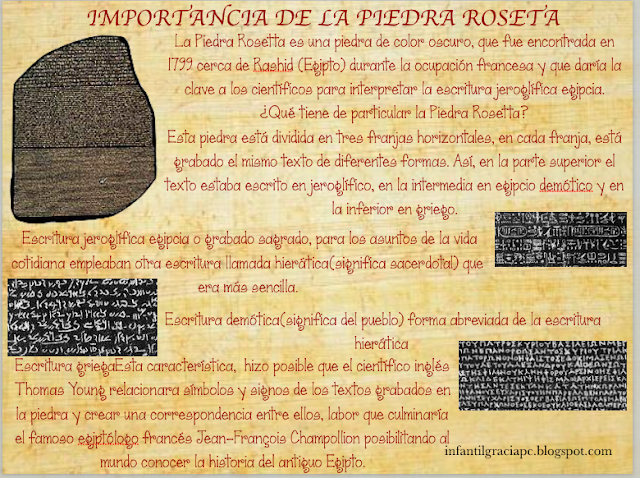 IMPORTANCIA DE LA PIEDRA ROSETA
La Piedra Rosetta es una piedra de color oscuro, que fue encontrada en
1799 cerca de Rashid (Egipto) durante la ocupación francesa y que daría la
clave a los científicos para interpretar la escritura jeroglífica egipcia.
¿Qué tiene de particular la Piedra Rosetta?
Esta piedra está dividida en tres franjas horizontales, en cada franja, está
grabado el mismo texto de diferentes formas. Así, en la parte superior el
texto estaba escrito en jeroglífico, en la intermedia en egipcio demótico y en
la inferior en griego.
Escritura jeroglífica egipcia o grabado sagrado, para los asuntos de la vida
cotidiana empleaban otra escritura llamada hierática(significa sacerdotal) que
era más sencilla.
Escritura demótica(significa del pueblo) forma abreviada de la escritura
hierática
Escritura griegaEsta característica, hizo posible que el científico inglés
Thomas Young relacionara símbolos y signos de los textos grabados en
la piedra y crear una correspondencia entre ellos, labor que culminaría
el famoso egiptólogo francés Jean-François Champollion posibilitando al
mundo conocer la historia del antiguo Egipto.
infantilgraciapc.blogspot.com